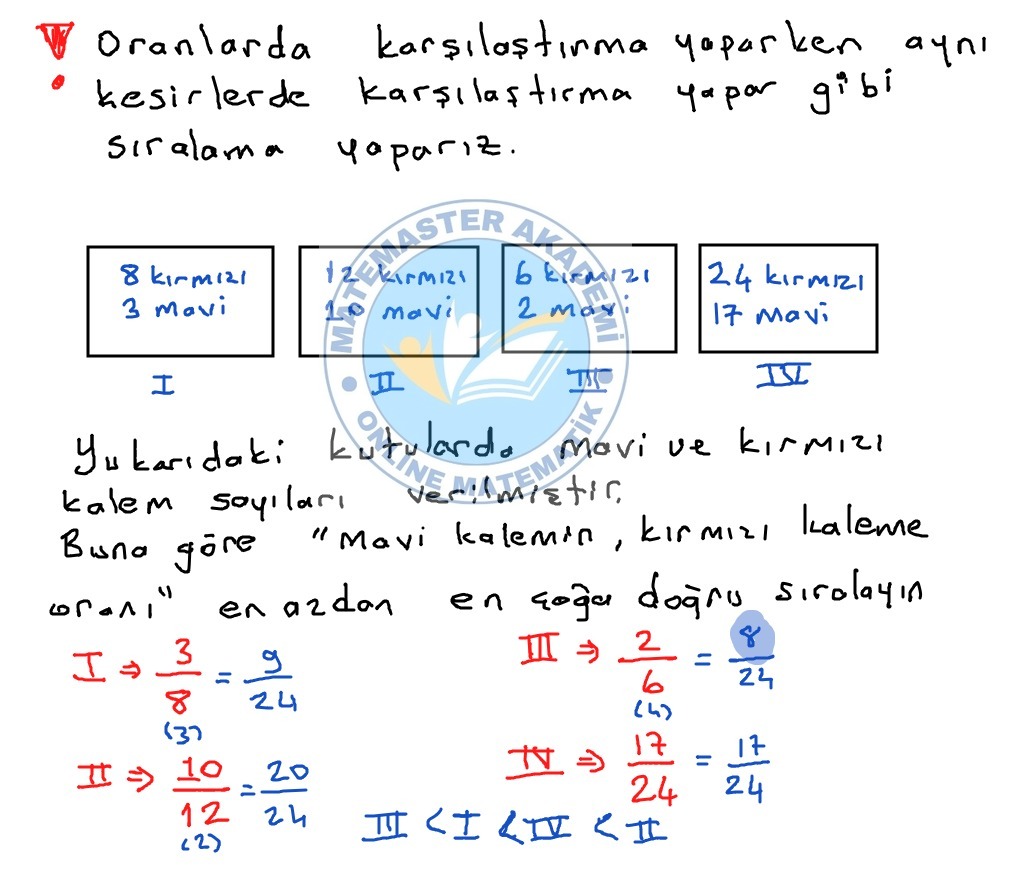 Oranlarda karşılaştırma yaparken aynı
kesirlerde karşılaştırma yapar gibi
sıralama yaparız.
MATEMASTER AKADEMİ
ONLINE MATEMATİK
8 kırmızı
3 mavi
I
12 kırmızı
10 mavi
II
6 kırmızı
2 mavi
III
24 kırmızı
17 mavi
IV
Yukarıdaki kutularda mavi ve kırmızı
kalem sayıları verilmiştir.
Buna göre "Mavi kalemin, kırmızı kaleme
oranı" en azdan en çoğa doğru sıralayın
I ⇒ 3/8 = 9/24
(3)
III ⇒ 2/6 = 8/24
(4)
II ⇒ 10/12 = 20/24
(2)
IV ⇒ 17/24 = 17/24
III < I < IV < II